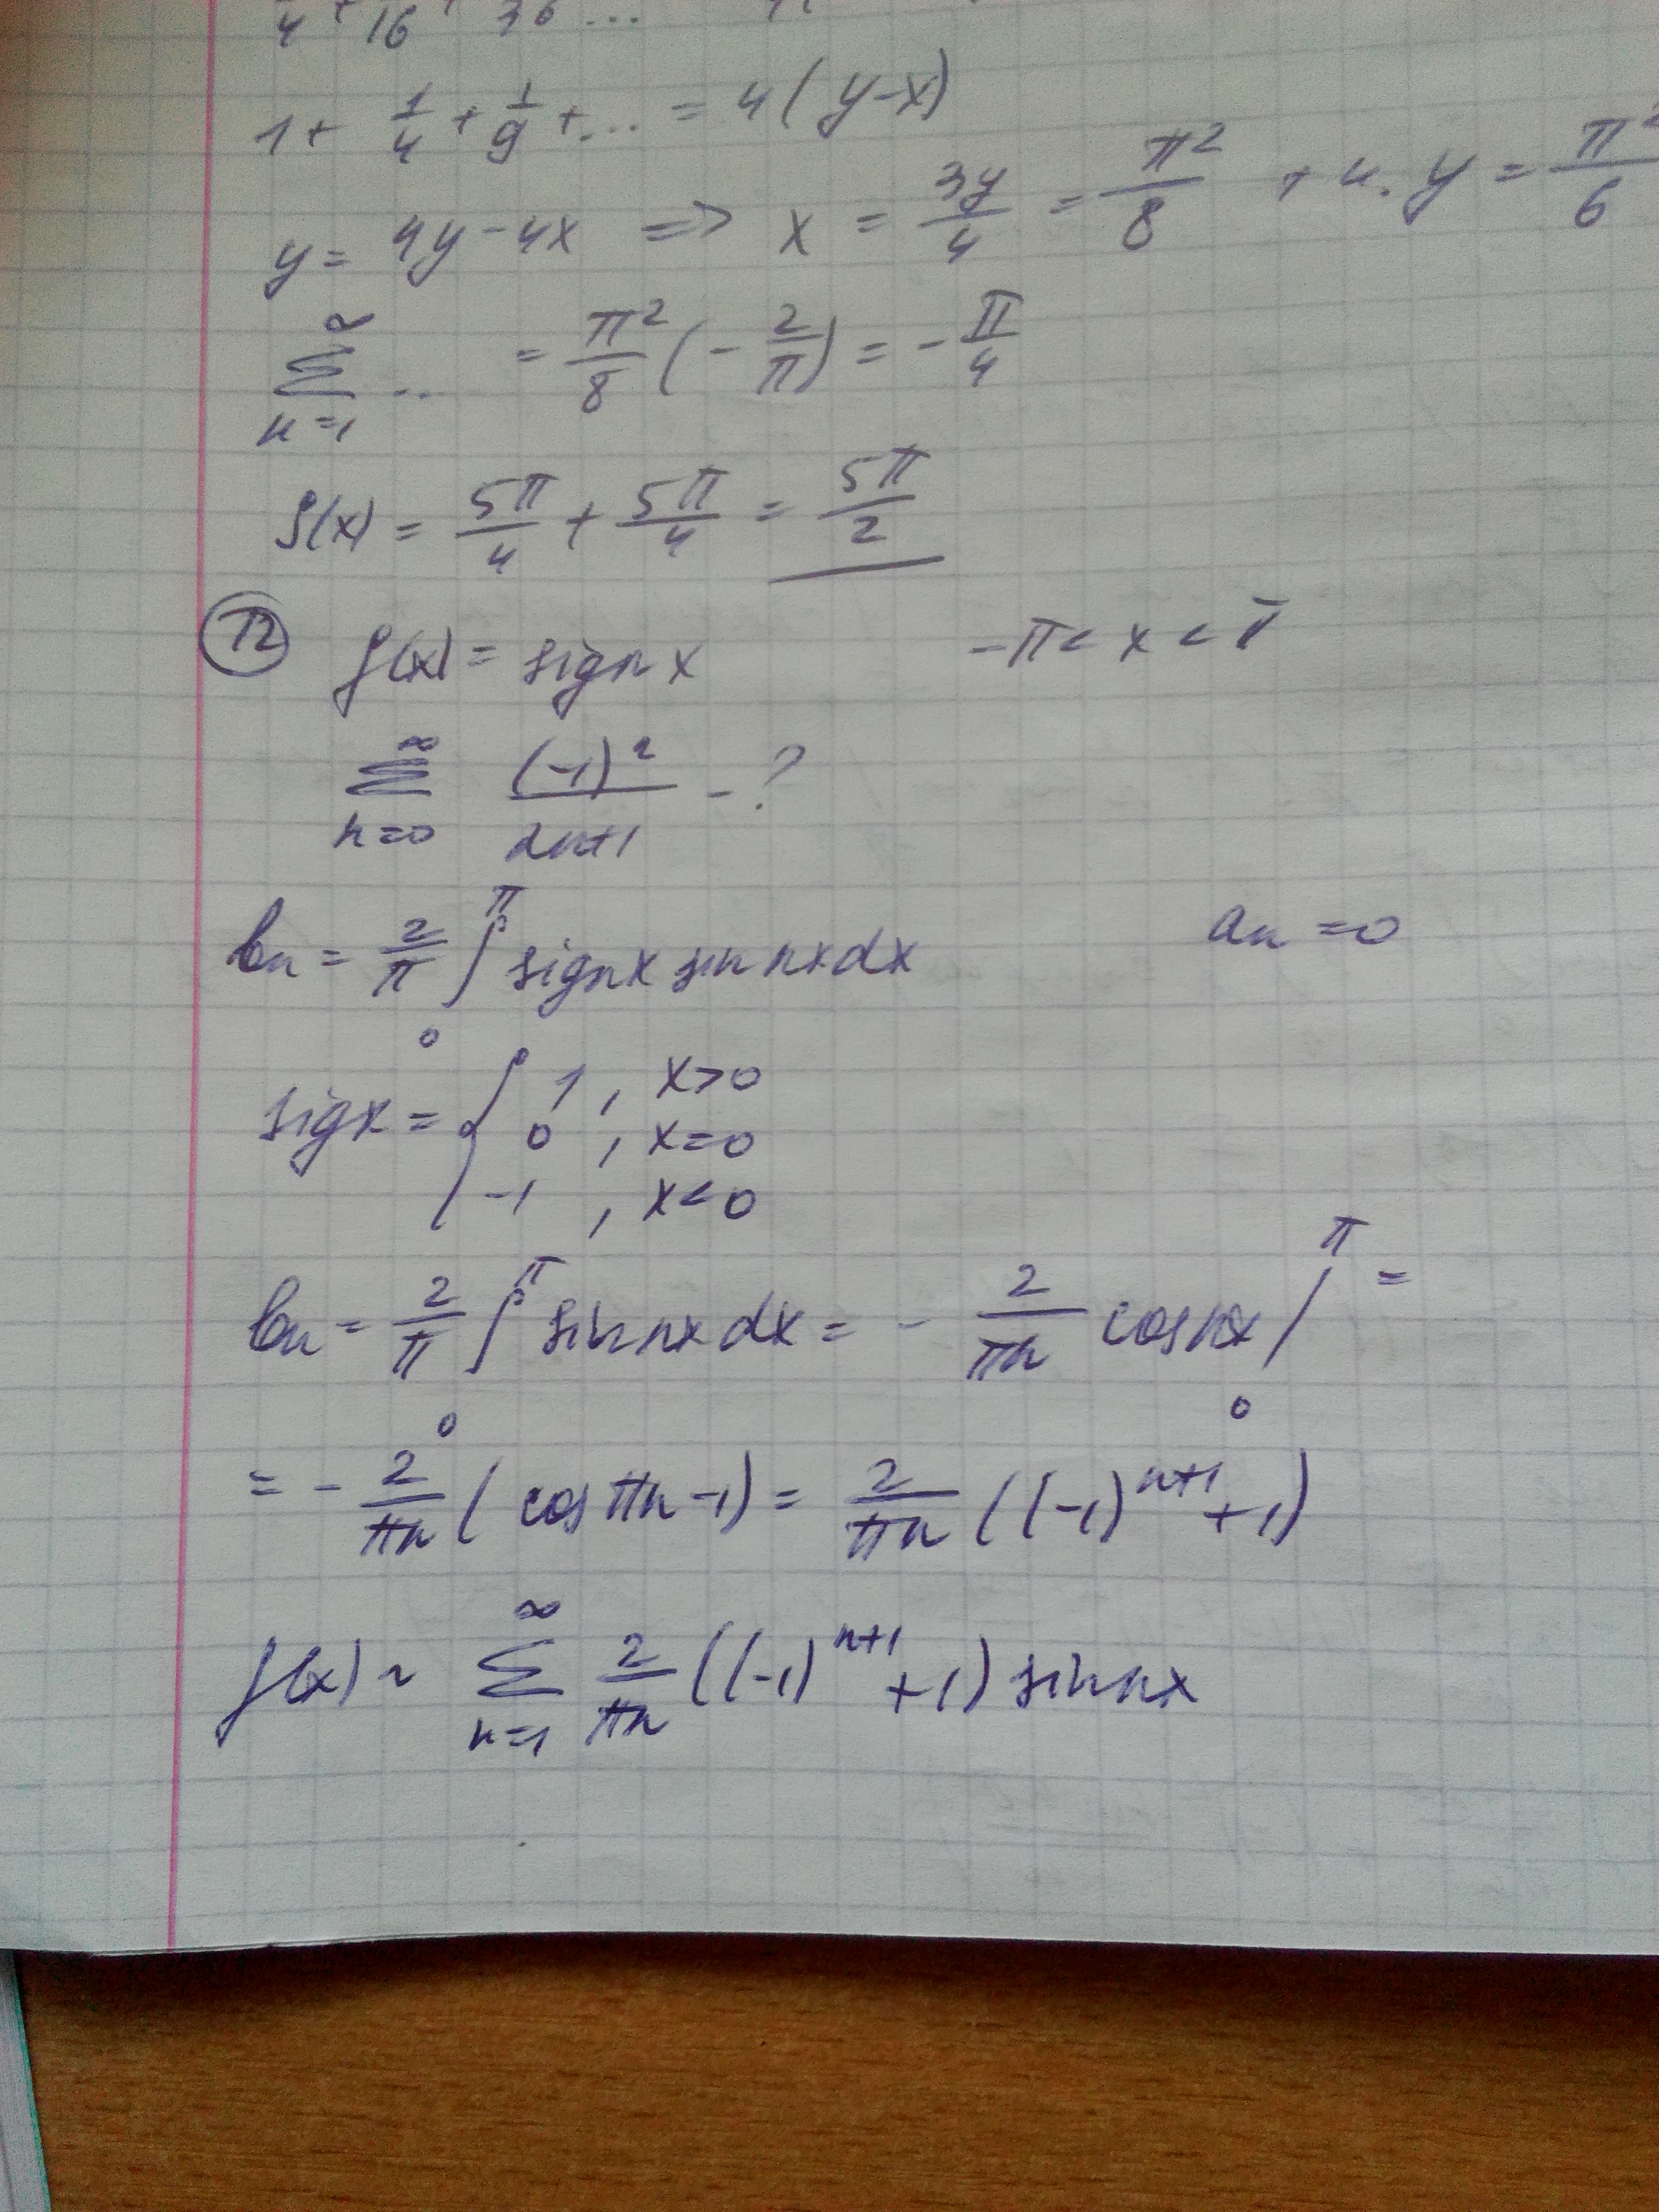 4 + 16 + 36 ...
1 + 1/4 + 1/9 + ... = 4(y-x)
y = 4y - 4x => x = 3y/4 = π²/8 т.к. y = π²/6
∑_{n=1}^{∞} ... = π²/8 (-2/π) = -π/4
f(x) = 5π/4 + 5π/4 = 5π/2
12 f(x) = sign x -π < x < π
∑_{n=0}^{∞} (-1)^n/(2n+1) - ?
b_n = 2/π ∫_0^π sign x sin nx dx a_n = 0
sigx = { 1, x>0
0, x=0
-1, x<0
b_n = 2/π ∫_0^π sin nx dx = - 2/(πn) cos nx |_0^π =
= - 2/(πn) (cos πn - 1) = 2/(πn) ((-1)^{n+1} + 1)
f(x) ~ ∑_{n=1}^{∞} 2/(πn) ((-1)^{n+1} + 1) sin nx